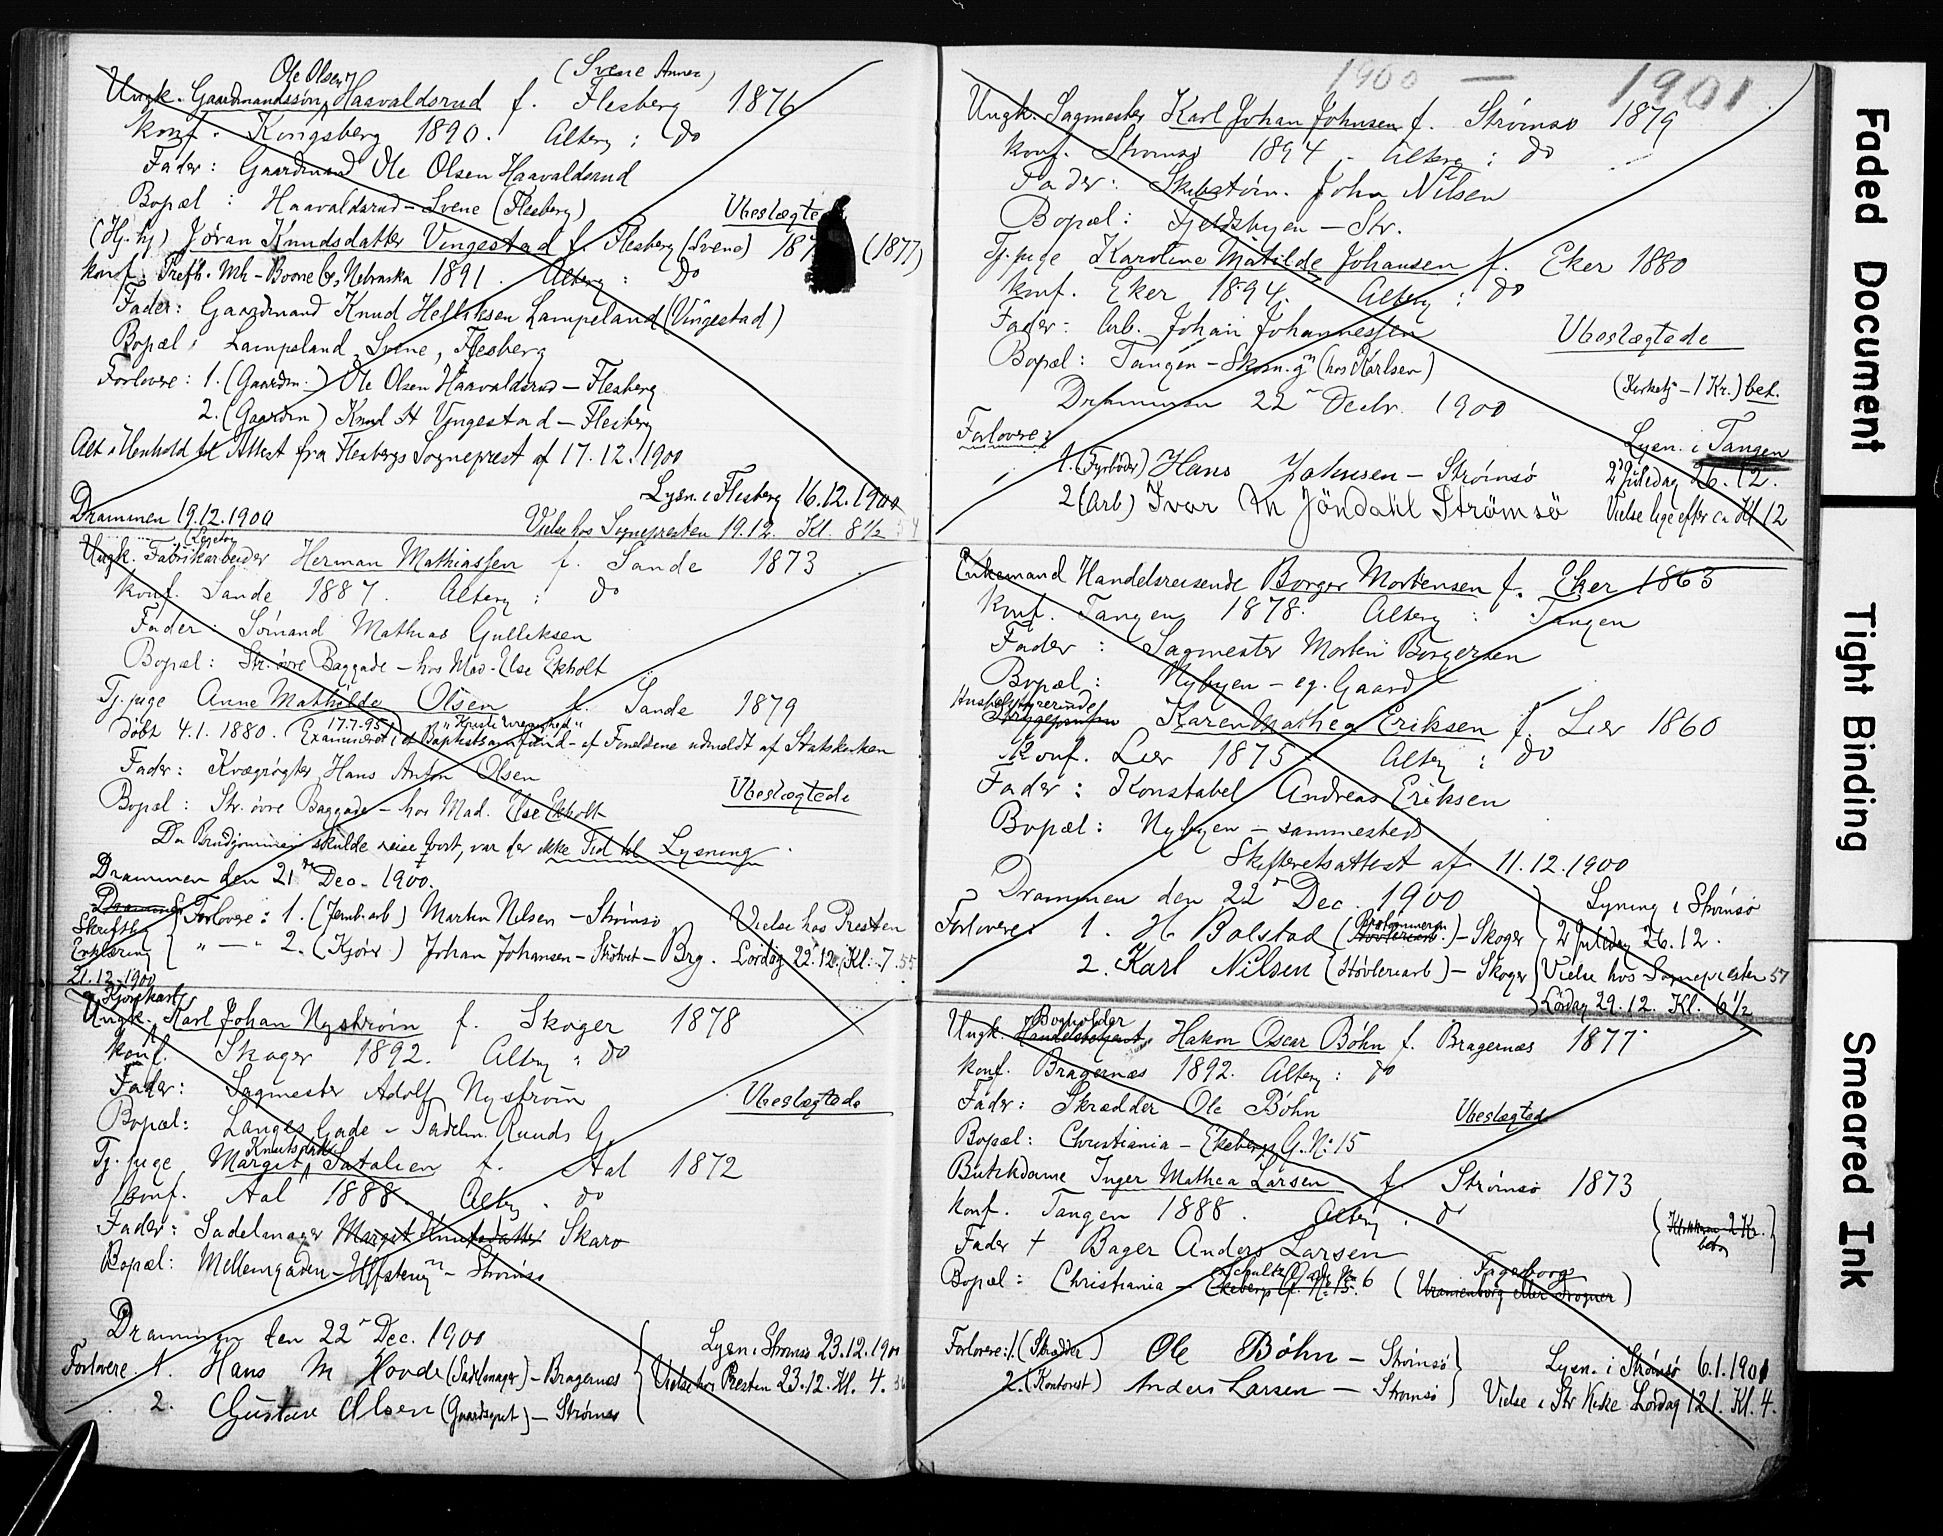 Ole Olsen (Svene Annex)
Ungk. Gaardmandssøn Haavaldsrud f. Flesberg 1876
konf. Kongsberg 1890. Alterg: do
Fader: Gaardmand Ole Olsen Haavaldsrud
Bopæl: Haavaldsrud - Svene (Flesberg)
Ubeslægtede
Jøran Knudsdatter Vingestad f. Flesberg (Svene) 187 (1877)
konf. Boone Nebraska 1891. Alterg: do
Fader: Gaardmand Knud Helliksen Lampeland (Vingestad)
Bopæl: Lampeland, Svene, Flesberg
Forlovere: 1. (Gaardm.) Ole Olsen Haavaldsrud - Flesberg
2. (Gaardm) Knud H Vingestad - Flesberg
Alt i Henhold til Attest fra Flesbergs Sogneprest af 17.12.1900
Lysn. i Flesberg 16.12.1900
Drammen 19.12.1900
Vielse hos Sognepresten 19.12. Kl. 8 1/2 54
Ungk. Fabrikarbeider Herman Mathiassen f. Sande 1873
konf. Sande 1887. Alterg: do
Fader: Sømand Mathias Gulliksen
Bopæl: Str. øvre Baggade - hos Mad. Else Ekholt
Tj. pige Anne Mathilde Olsen f. Sande 1879
17.7.95 "Kristi menighed"
Døbt 4.1.1880. Examineret i et Baptistsamfund - af Forældrene udmeldt af Statskirken
Fader: Kvægrøgter Hans Anton Olsen
Ubeslægtede
Bopæl: Str. øvre Baggade - hos Mad. Else Ekholt
Da Brudgommen skulde reise bort, var der ikke Tid til Lysning.
Drammen den 21de Dec. 1900.
Forlovere: 1. (Jernb.arb) Martin Nilsen - Strømsø
Vielse hos Presten
Skriftlig Erklæring 21.12.1900
" — " 2. (Kjørek.) Johan Johansen - Brg. Lørdag 22.12. Kl. 7. 55
Kjørekarl
Ungk. Karl Johan Nystrøm f. Skoger 1878
konf. Skoger 1892. Alterg: do
Fader: Sagmester Adolf Nystrøm
Ubeslægtede
Bopæl: Langes Gade - Sadelm. Ruuds G.
Knutsdatter
Tj. pige Margit Satalien f. Aal 1872
konf. Aal 1888. Alterg. do
Fader: Sadelmager Margit Knutsdatter Skaro
Bopæl: Mellemgaden - Strømsø
Drammen den 22 Dec. 1900
Lysn. i Strømsø 23.12.1900
Forlovere 1. Hans M Hovde (Sadelmager) - Bragernæs
Vielse hos Presten 23.12. Kl. 4. 56
2. Gustave Olsen (Gaardsgut) - Strømsø
1900 — 1901
Ungk. Sagmester Karl Johan Johnsen f. Strømsø 1879
konf. Strømsø 1894. - Alterg: do
Fader: Skibstøm. John Nilsen
Bopæl: Fjeldbyen - Str.
Tj. pige Karoline Matilde Johansen f. Eker 1880
konf. Eker 1894. Alterg: do
Fader: Arb. Johan Johannessen
Ubeslægtede
Bopæl: Tangen - (hos Karlsen)
(Kirketj - 1 Kr.) bet.
Drammen 22 Decbr. 1900
Forlovere:
Lysn. i Tangen
1. (Fyrbøder) Hans Johnsen - Strømsø
2 Juledag 26.12.
2 (Arb) Ivar M Jöndahl Strømsö
Vielse lige efter ca Kl 12
Enkemand Handelsreisende Borger Mortensen f. Eker 1863
konf. Tangen 1878. Alterg: Tangen
Fader: Sagmester Morten Borgersen
Bopæl: Nybyen - eg. Gaard
Husbestyrerinde
Karen Mathea Eriksen f. Lier 1860
Konf. Lier 1875 Alterg: do
Fader: Konstabel Andreas Eriksen
Bopæl: Nybyen - sammesteds
Skifteretsattest af 11.12.1900
Drammen den 22 Dec. 1900
Lysning i Strømsø
Forlovere: 1. H. Bolstad - Skoger
2 Juledag 26.12.
2. Karl Nilsen (Høvleriarb) - Skoger
Vielse hos Sognepresten 57
Lørdag 29.12. Kl. 6 1/2
Bogholder
Ungk. Handelsbetjent Hakon Oscar Bøhn f. Bragernæs 1877
konf. Bragernæs 1892. Alterg: do
Fader: Skrædder Ole Bøhn
Ubeslægtede
Bopæl: Christiania - Ekebergs G. No 15
Butikdame Inger Mathea Larsen f. Strømsø 1873
konf. Tangen 1888. Alterg. do
Fader † Bager Anders Larsen
Schultz Gade No 6 Fagerborg
Bopæl: Christiania - Ekebergs G. No 15. (Uranienborg eller Frogner)
Forlovere: 1. (Skrædder) Ole Bøhn - Strömsö
Lysn. i Strømsø 6.1.1901
2. (Kontorist) Anders Larsen - Strømsø
Vielse i Str Kirke Lørdag 12.1. Kl. 4.
Faded Document
Tight Binding
Smeared Ink